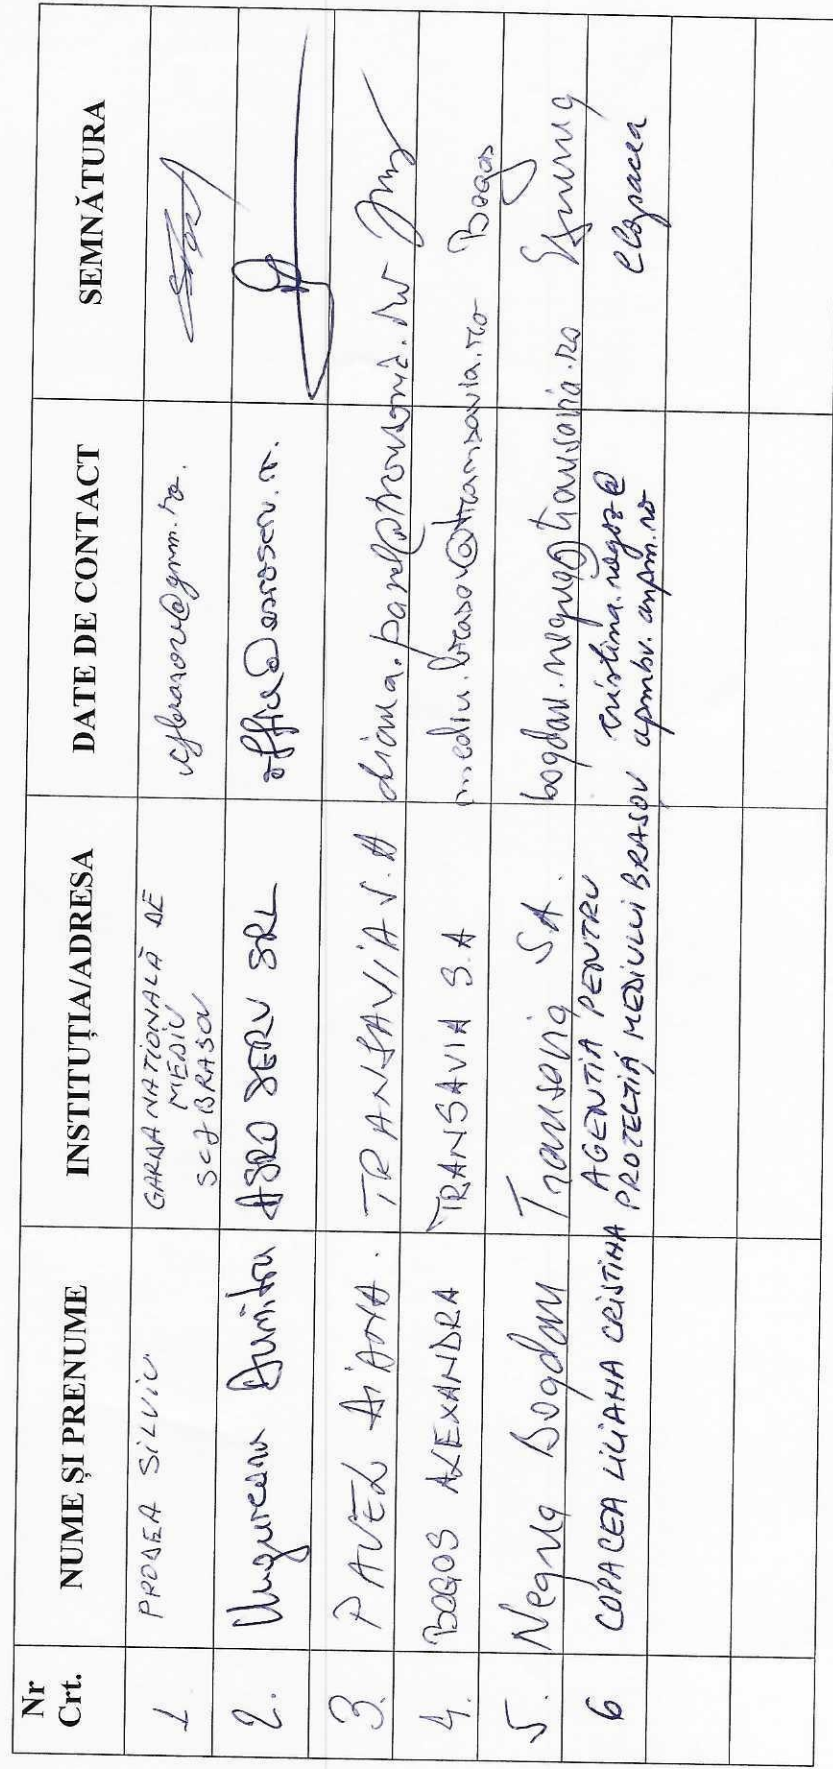 Nr Crt.
NUME ȘI PRENUME
INSTITUȚIA/ADRESA
DATE DE CONTACT
SEMNĂTURA
1
PRODEA SILVIU
GARDA NATIONALĂ DE
MEDIU
SCJ BRASOV
cjbrasov@gnm.ro.
2.
Ungureanu Dumitru
AGRO SERV SRL
3.
PAVEL DIANA.
TRANSAVIA S.A
diana.pavel@transavia.ro
4.
BOGOS ALEXANDRA
TRANSAVIA S.A
mediu.brasov@transavia.ro
Bogos
5.
Negrea Bogdan
Transavia SA.
6
COPACEA LILIANA CRISTINA
AGENTIA PENTRU
PROTECTIA MEDIULUI BRASOV
apmbv.anpm.ro
CCopacea